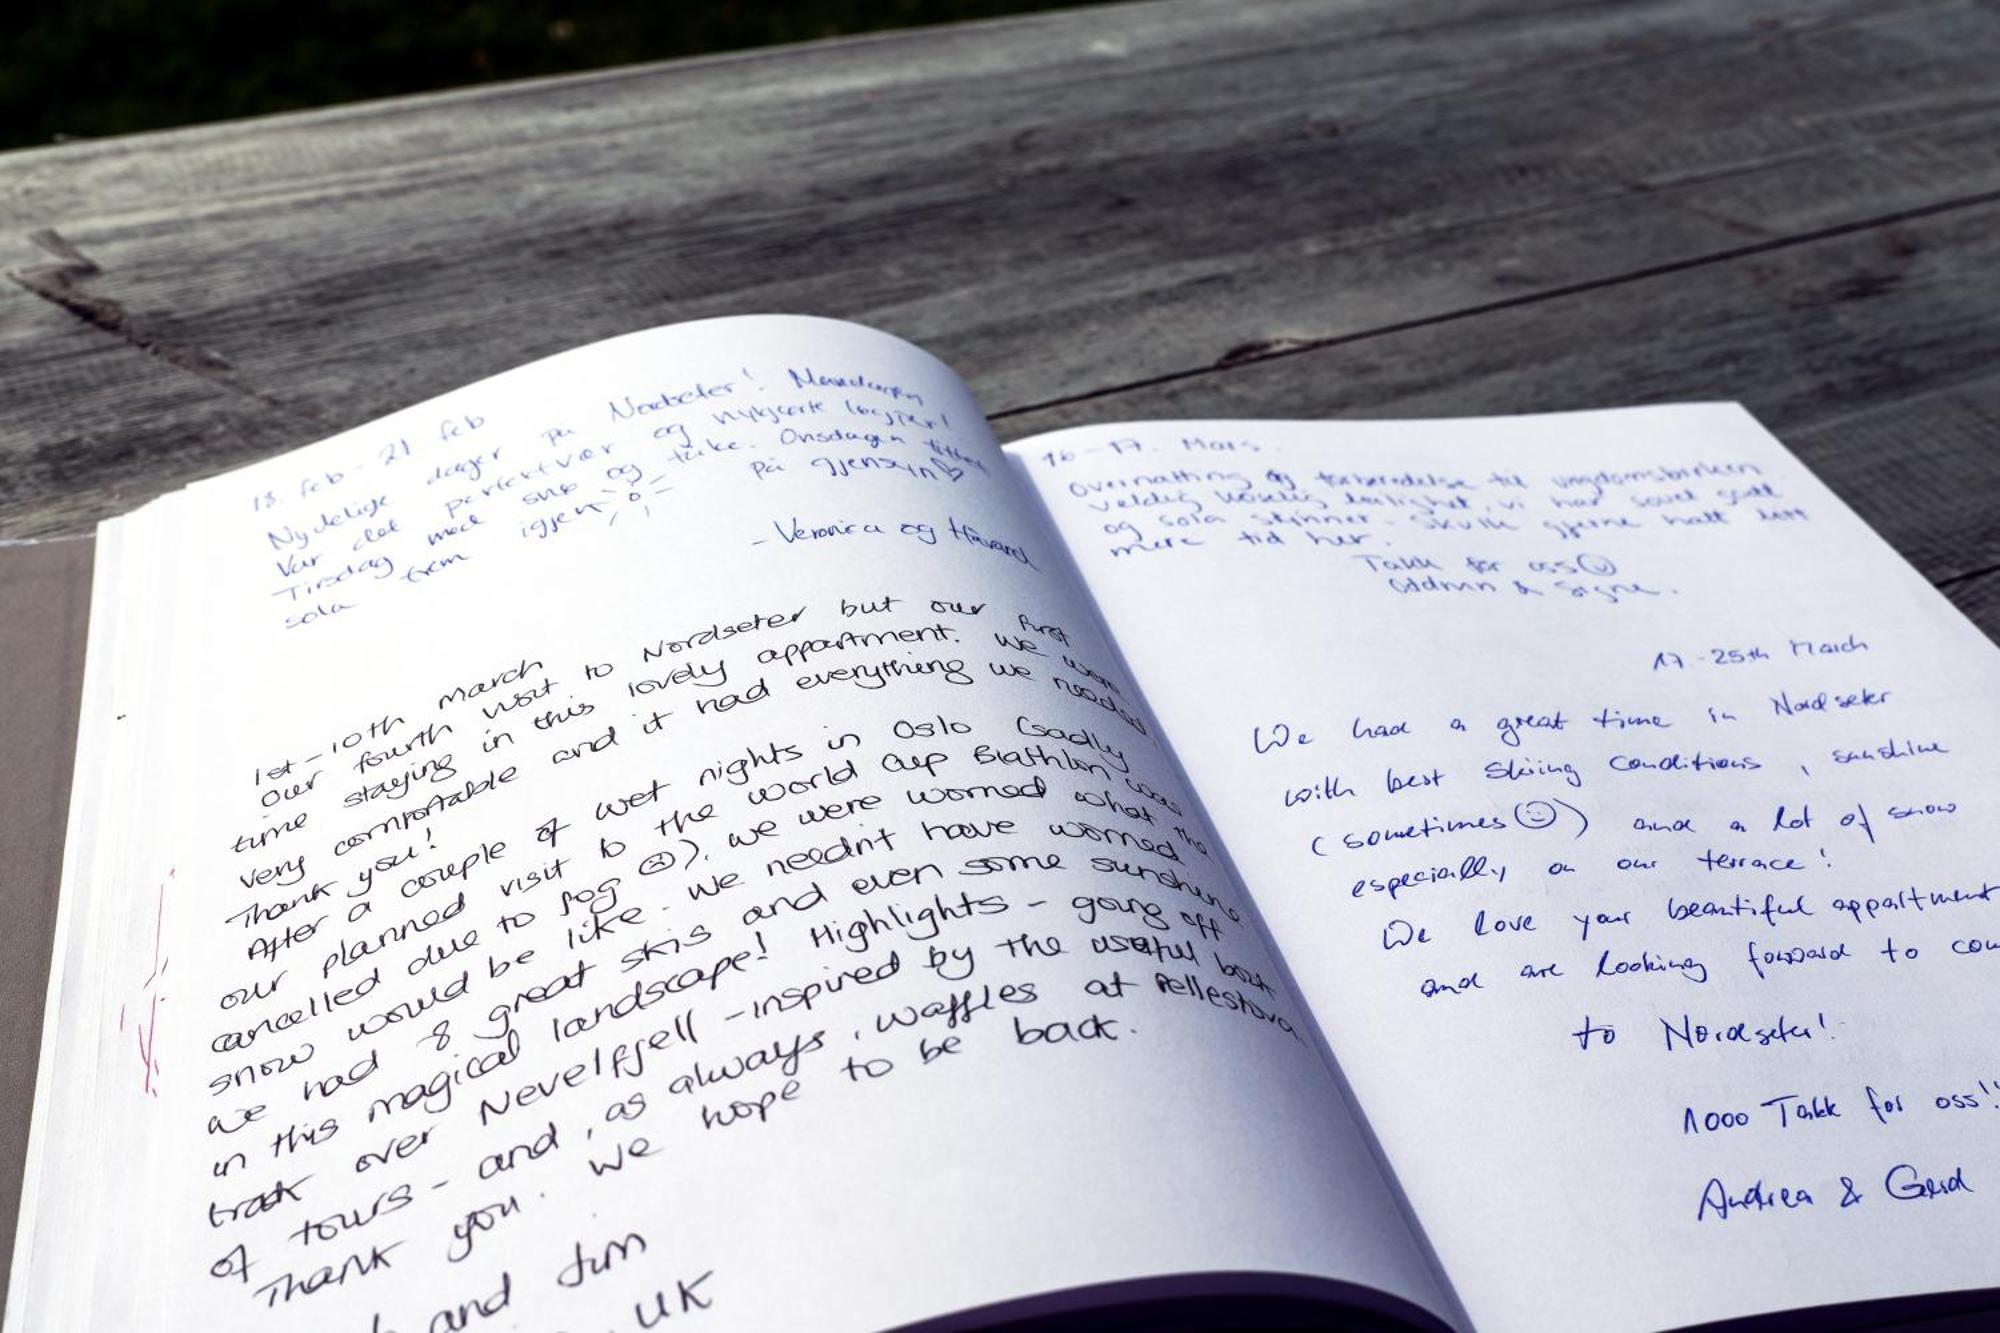 18. feb - 21 feb
Nydelige dager på Nordseter! Mandagen
var det perfekt vær og nykjørte løyper!
Tirsdag med snø og tåke. Onsdagen tittet
sola frem igjen På gjensyn ♡
- Veronica og Håvard
1st - 10th march
Our fourth visit to Nordseter but our first
time staying in this lovely appartment. We were
very comfortable and it had everything we needed.
Thank you!
After a couple of wet nights in Oslo (sadly
our planned visit to the World Cup Biathlon was
cancelled due to fog ☹). We were worried what the
snow would be like. We needn't have worried
we had 8 great skis and even some sunshine
in this magical landscape! Highlights - going off
track over Nevelfjell - inspired by the useful book
of tours - and, as always, waffles at Pellestova.
Thank you. We hope to be back.
and Jim
UK
16-17. Mars.
Overnatting og forberedelse til ungdomsbirken.
Veldig koselig leilighet, vi har sovet godt
og sola skinner. Skulle gjerne hatt litt
mere tid her.
Takk for oss ☺
Oddrun & Signe.
17-25th March
We had a great time in Nordseter
with best skiing conditions, sunshine
(sometimes ☺) and a lot of snow
especially on our terrace!
We love your beautiful appartment
and are looking forward to
to Nordseter!
1000 Takk for oss!!
Andrea & Gerd